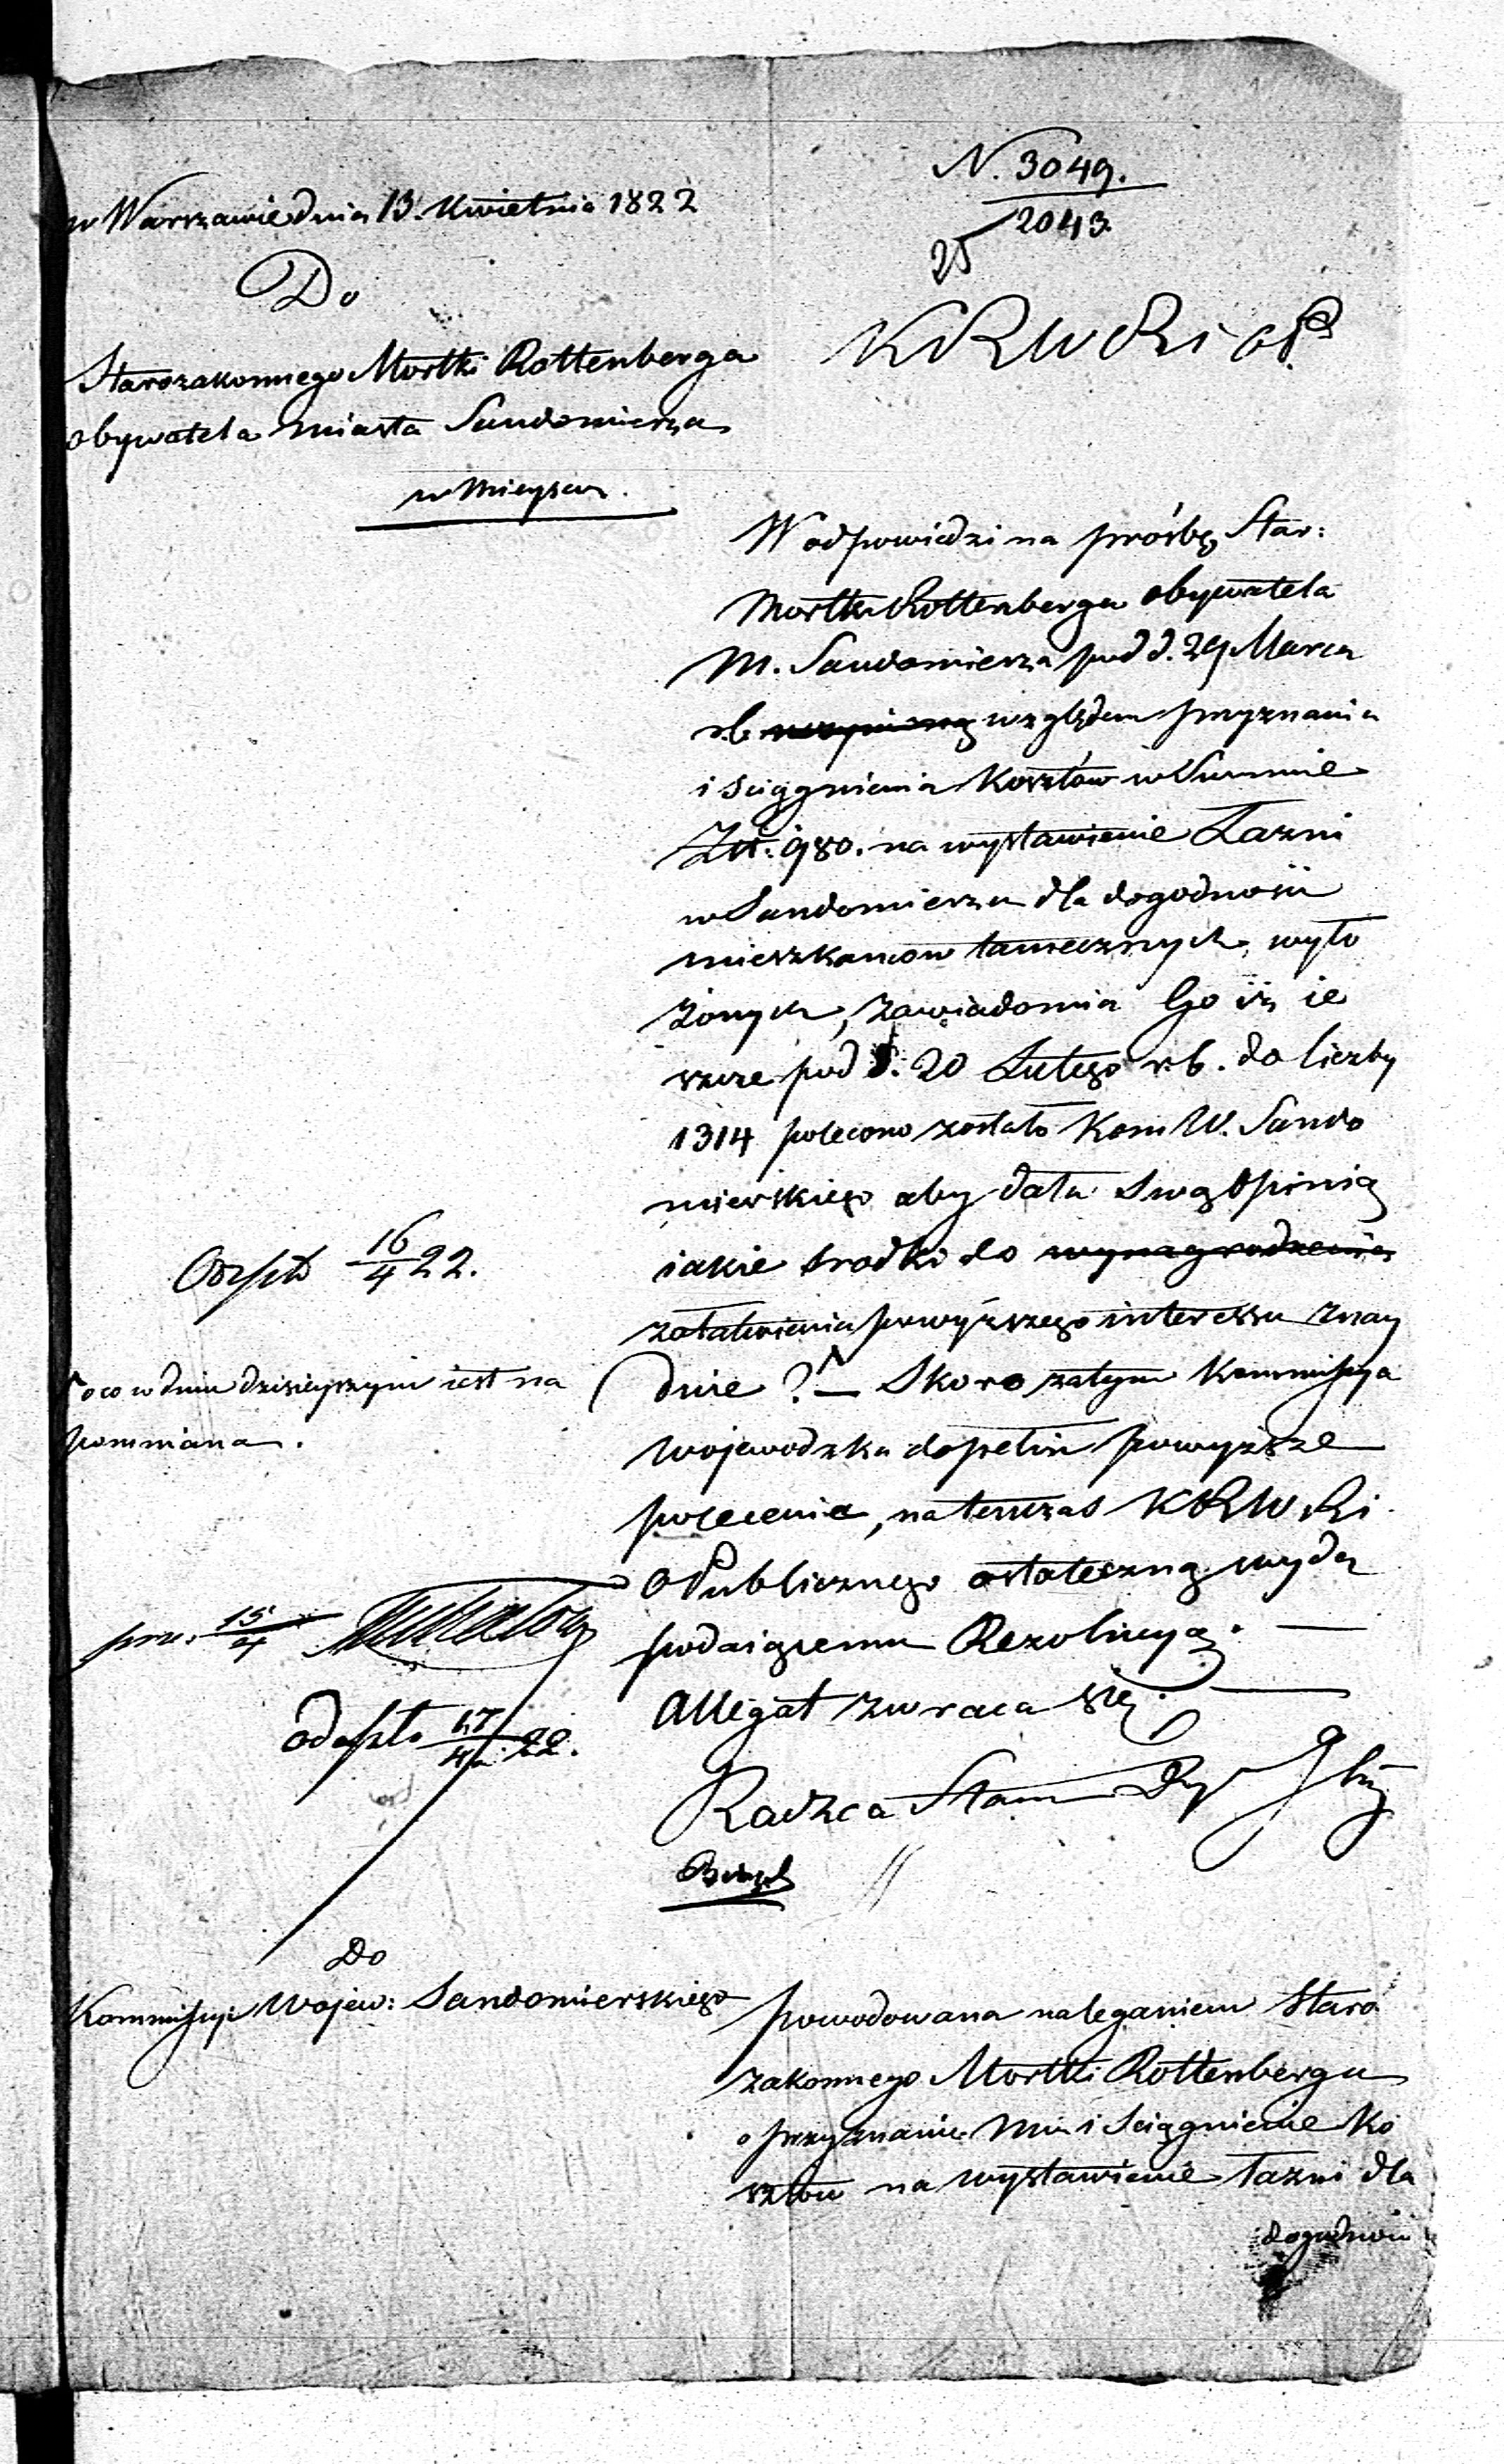 N. 3049.
2043
25
w Warszawie dnia 13. Kwietnia 1822
Do
Starozakonnego Mortki Rottenberga
obywatela miasta Sandomierza
w Mieyscu.
KRWRiOP.
W odpowiedzi na prośbę Star:
Mortki Rottenberga obywatela
M. Sandomierza pod d. 29 Marca
r.b. względem przyznania
i sciągnienia Kosztów w Summie
Złt: 980. na wystawienie Łazni
w Sandomierzu dla dogodności
mieszkancow tamecznych, wyło
żonych, zawiadomia Go iż ie
szcze pod d. 20 Lutego r.b. do liczby
1314 polecono zostało Kom W. Sando
mierskiego aby dała swą Opinią
iakie srodki do wynagrodzenia
załatwienia powyższego interessu znay
dzie? — Skoro zatym Kommissya
Wojewodzka dopełni powyższe
polecenie, natenczas KRWRi
OPublicznego ostateczną wyda
podaiącemu Rezolucyą. —
Allegat zwraca się. —
Radzca Stanu Dyr Jlny
Odspto 16/4 22.
o co w dniu dzisieyszym iest na
pomniana.
prze. 15/4
odespto 17/4 22.
Do
Kommissyi Wojew: Sandomierskiego
powodowana naleganiem Staro
zakonnego Mortki Rottenberga
o przyznanie Mu i sciągnienie Ko
sztów na wystawienie łazni dla
dogodności